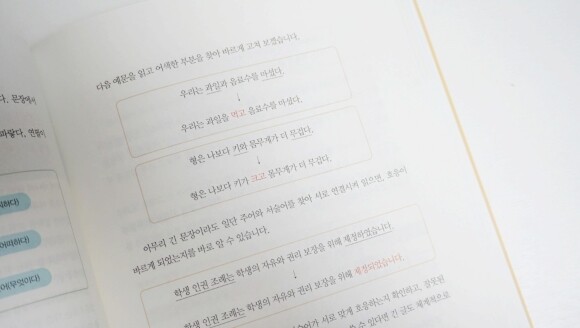 다. 문장에서
바랍니다. 연필이
다음 예문을 읽고 어색한 부분을 찾아 바르게 고쳐 보겠습니다.
우리는 과일과 음료수를 마셨다.
↓
우리는 과일을 먹고 음료수를 마셨다.
형은 나보다 키와 몸무게가 더 무겁다.
↓
형은 나보다 키가 크고 몸무게가 더 무겁다.
아무리 긴 문장이라도 일단 주어와 서술어를 찾아 서로 연결시켜 읽으면, 호응이
바르게 되었는지를 바로 알 수 있습니다.
학생 인권 조례는 학생의 자유와 권리 보장을 위해 제정하였습니다.
↓
학생 인권 조례는 학생의 자유와 권리 보장을 위해 제정되었습니다.
어가 서로 맞게 호응하는지 확인하고, 잘못된
쓸 수 있다면 긴 글도 체계적으로
어떠하다)
(무엇이다)